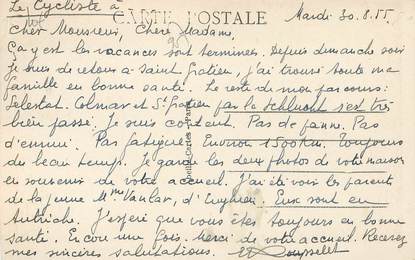 Le Cycliste à
CARTE POSTALE
Mardi 30.8.55
Cher Monsieur, Chère Madame,
Ça y est les vacances sont terminées. Depuis dimanche soir
je suis de retour à Saint Gratien, j'ai trouvé toute ma
famille en bonne santé. Le reste de mon parcours:
Sélestat. Colmar et St Gratien par la Schlucht s'est très
bien passé. Je suis content. Pas de panne. Pas
d'ennui. Pas fatigué. Environ 1500 Km. Toujours
du beau temps. Je garde les deux photos de votre maison
en souvenir de votre accueil. J'ai été voir les parents
de la jeune Mme d'Enghien. Eux sont en
Autriche. J'espère que vous êtes toujours en bonne
santé. Encore une fois. Merci de votre accueil. Recevez
mes sincères salutations.